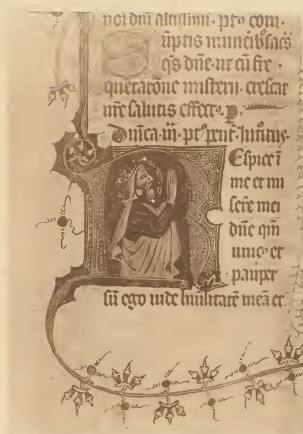 nos dñi altissimi · pꝰ com.
Sũptis muneribꝰ sacs
qs dñe · ut cũ fre
quetacõne misterii · crescat
nr̃e salutis effectꝰ · P.
Dñica · iii · pꝰ pent · Introitus ·
Respice ĩ
me et mi
sere mei
dñe qm̃
unicꝰ et
pauper
sũ ego uide humilitatẽ meã et